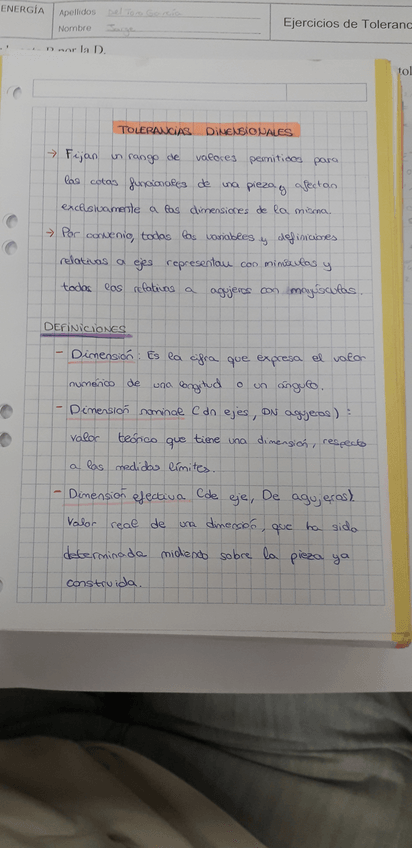 ENERGÍA
Apellidos
Nombre Jorge
Ejercicios de Toleranc
por la D.
tol
TOLERANCIAS DIMENSIONALES
→ Fijan un rango de valores permitidos para
las cotas funcionales de una pieza y afectan
exclusivamente a las dimensiones de la misma.
→ Por convenio, todas las variables y definiciones
relativas a ejes representan con minúsculas y
todas las relativas a agujeros con mayúsculas.
DEFINICIONES
- Dimensión: Es la cifra que expresa el valor
numérico de una longitud o un ángulo.
- Dimensión nominal (dn ejes, DN agujeros):
valor teórico que tiene una dimensión, respecto
a las medidas límites.
- Dimensión efectiva (de eje, De agujeros).
Valor real de una dimensión, que ha sido
determinada midiendo sobre la pieza ya
construida.